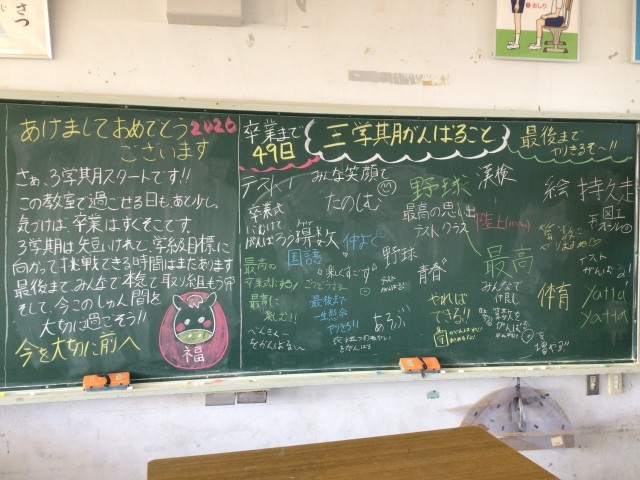 さつ
おしり
あけましておめでとう2026
ございます
さぁ、3学期スタートです!!
この教室で過ごせる日も、あと少し。
気づけば、卒業はすぐそこです。
3学期は短いけれど、学級目標に
向かって挑戦できる時間はまだあります
最後まで、みんなで本気で取り組もう
そして、今このしゅん間を
大切に過ごそう!!
今を大切に前へ
福
卒業まで
49日
三学期がんばること
最後まで
やりきるぞ〜!!
テスト!
みんな笑顔で
たのしむ
野球
漢検
絵
持久走
卒業式
にむけて
がんばろう
算数
国語
仲よく
最高の思い出
テスト クラス
陸上
図工
野球
最高
青春
楽しくすごす
最高の
卒業式にする!
最後に
楽しむ!!
最後まで
一生懸命
やりきる!!
あそぶ
やれば
できる!!
みんなで
仲良し
体育
テスト
がんばる!
yatta!
yatta!
算数を
がんばる
べんきょう
をがんばる。